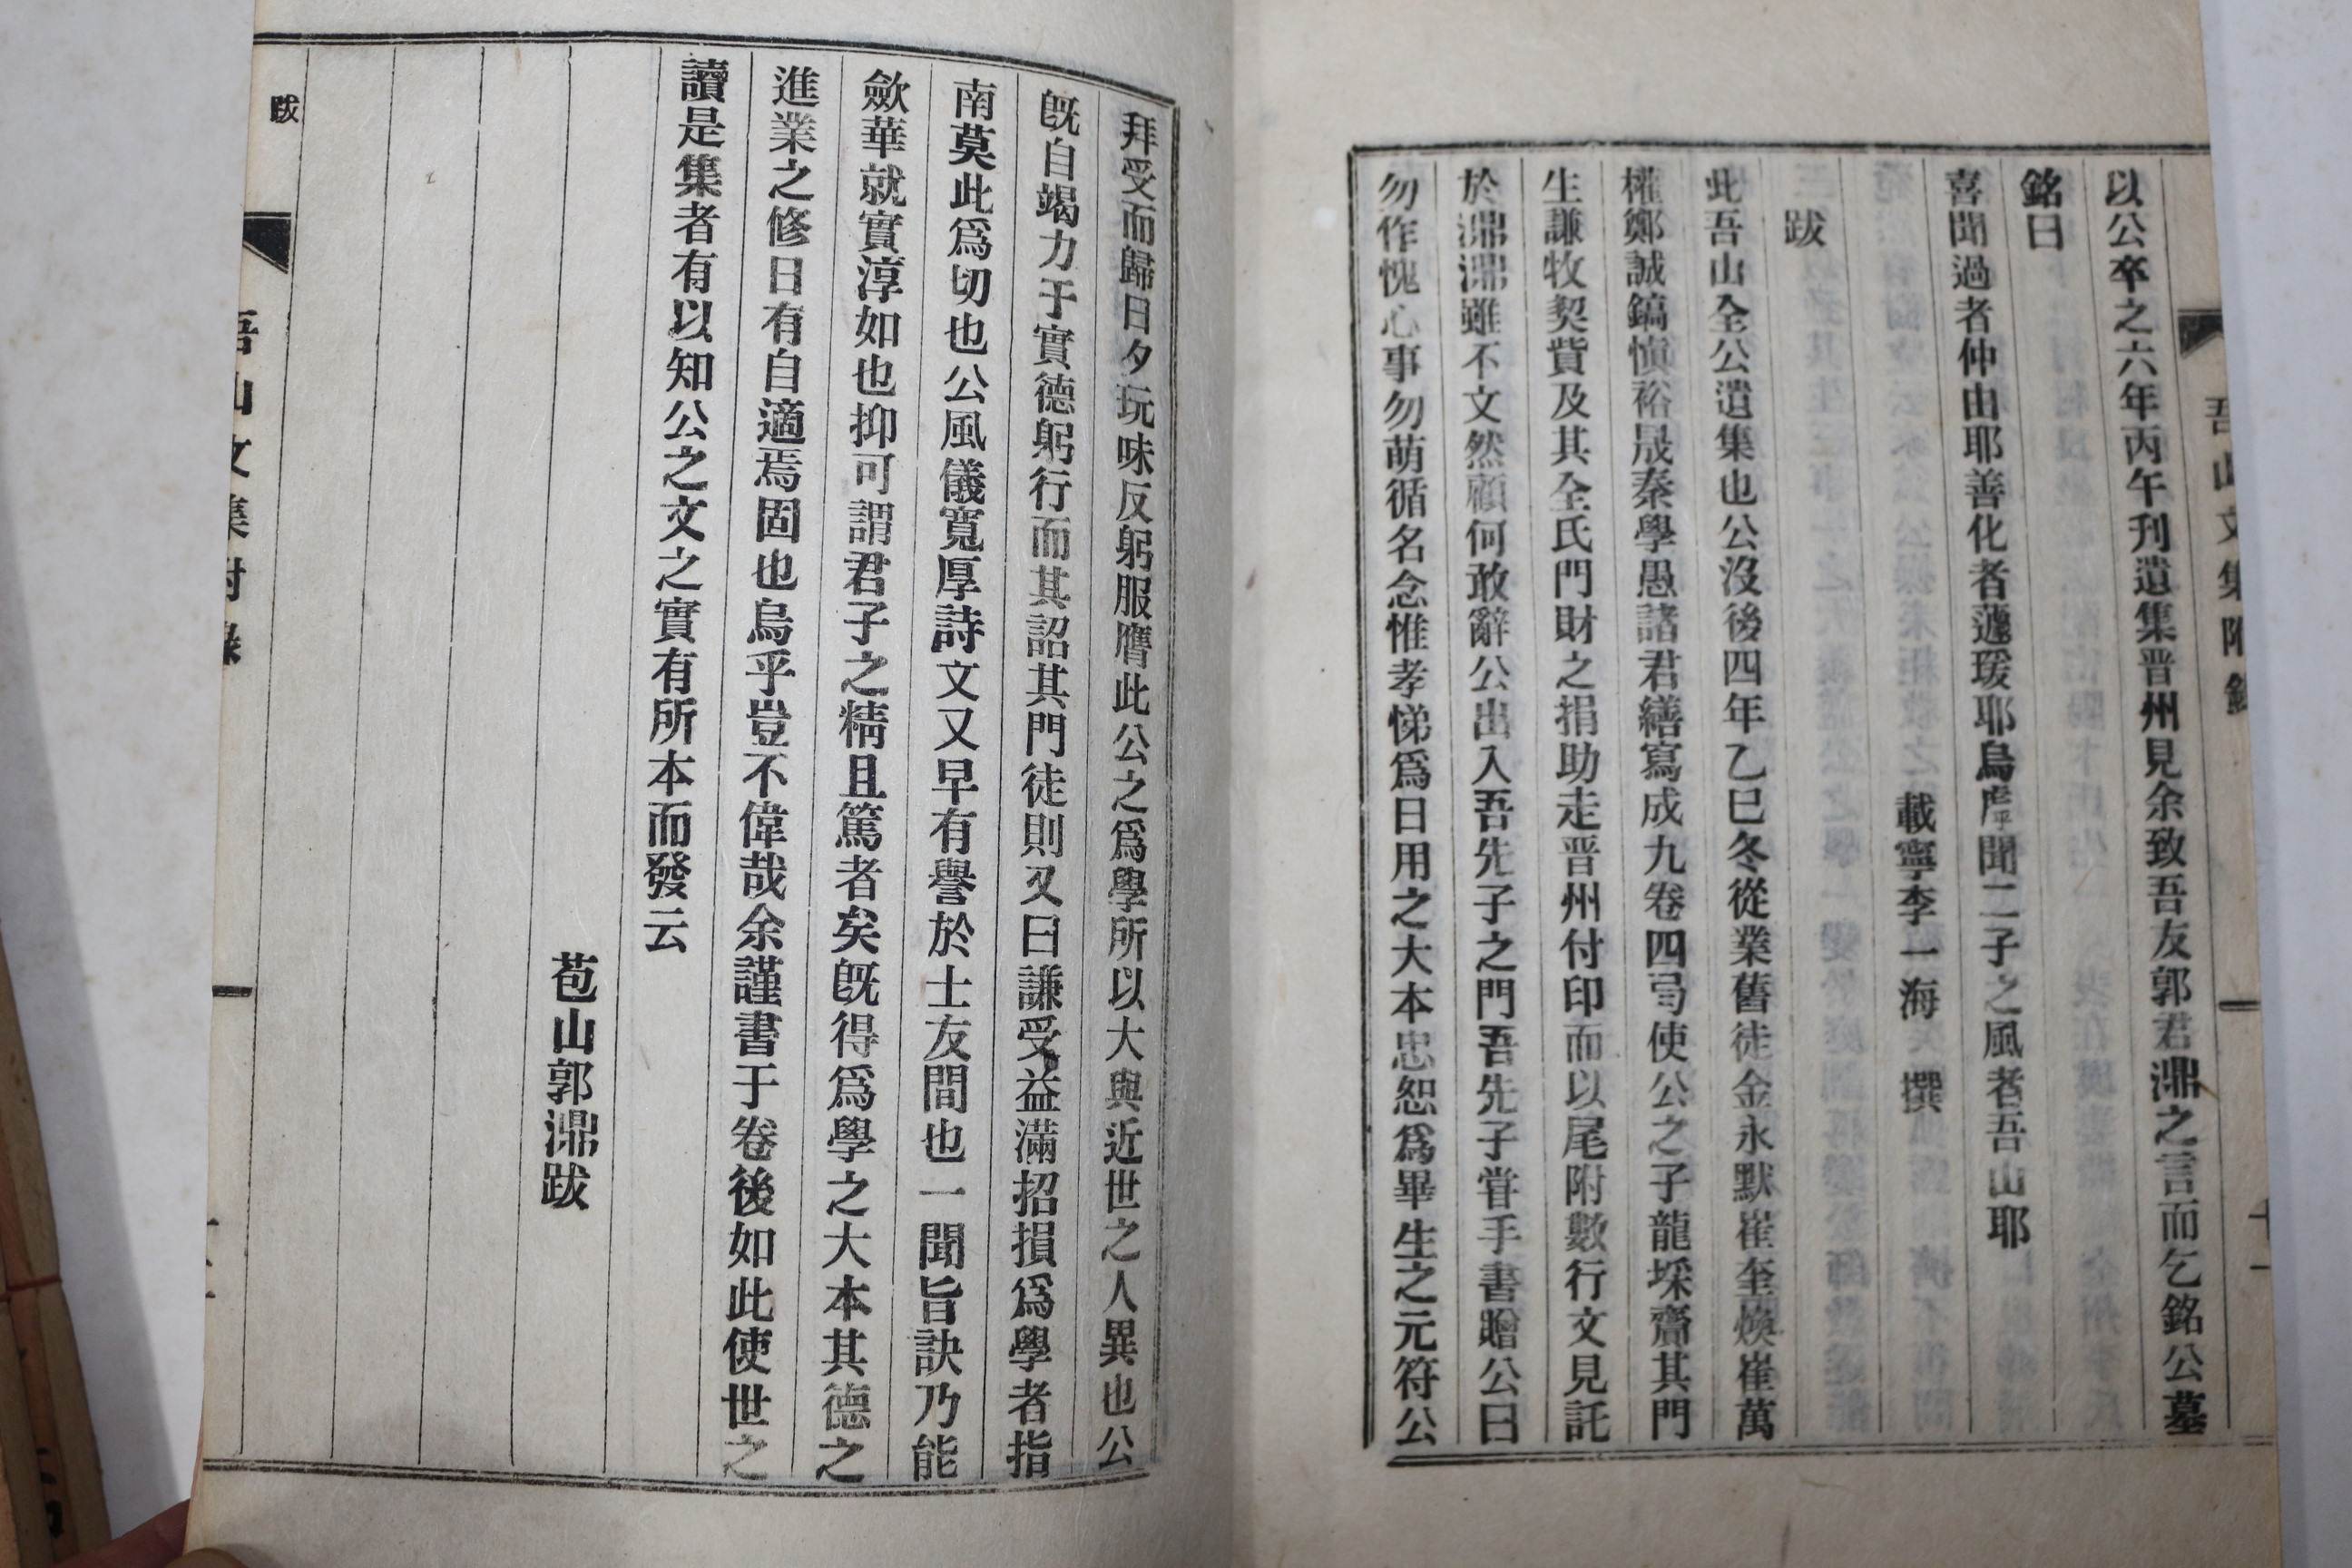 以公卒之六年丙午刊遺集晋州見余致吾友郭君鼎之言而乞銘公墓
銘曰
喜聞過者仲由耶善化者蘧瑗耶烏虖聞二子之風者吾山耶
載寧李一海 撰
跋
此吾山全公遺集也公沒後四年乙巳冬從業舊徒金永默崔奎煥崔萬
權鄭誠鎬愼裕晟秦學愚諸君繕寫成九卷四弓使公之子龍埰齎其門
生謙牧契貲及其全氏門財之捐助走晋州付印而以尾附數行文見託
於濎濎雖不文然顧何敢辭公出入吾先子之門吾先子甞手書贈公曰
勿作愧心事勿萌循名念惟孝悌爲日用之大本忠恕爲畢生之元符公
拜受而歸日夕玩味反躬服膺此公之爲學所以大與近世之人異也公
旣自竭力于實德躬行而其詔其門徒則又曰謙受益滿招損爲學者指
南莫此爲切也公風儀寬厚詩文又早有譽於士友間也一聞旨訣乃能
斂華就實淳如也抑可謂君子之精且篤者矣旣得爲學之大本其德之
進業之修日有自適焉固也烏乎豈不偉哉余謹書于卷後如此使世之
讀是集者有以知公之文之實有所本而發云
苞山郭濎跋
跋
吾山文集附錄